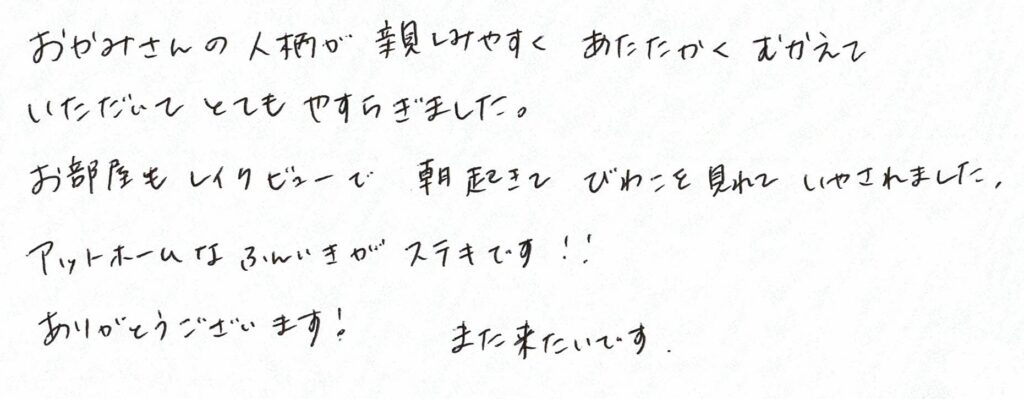 おかみさんの人柄が親しみやすくあたたかくむかえて
いただいてとてもやすらぎました。
お部屋もレイクビューで朝起きてびわこを見れていやされました。
アットホームなふんいきがステキです!!
ありがとうございます! また来たいです.